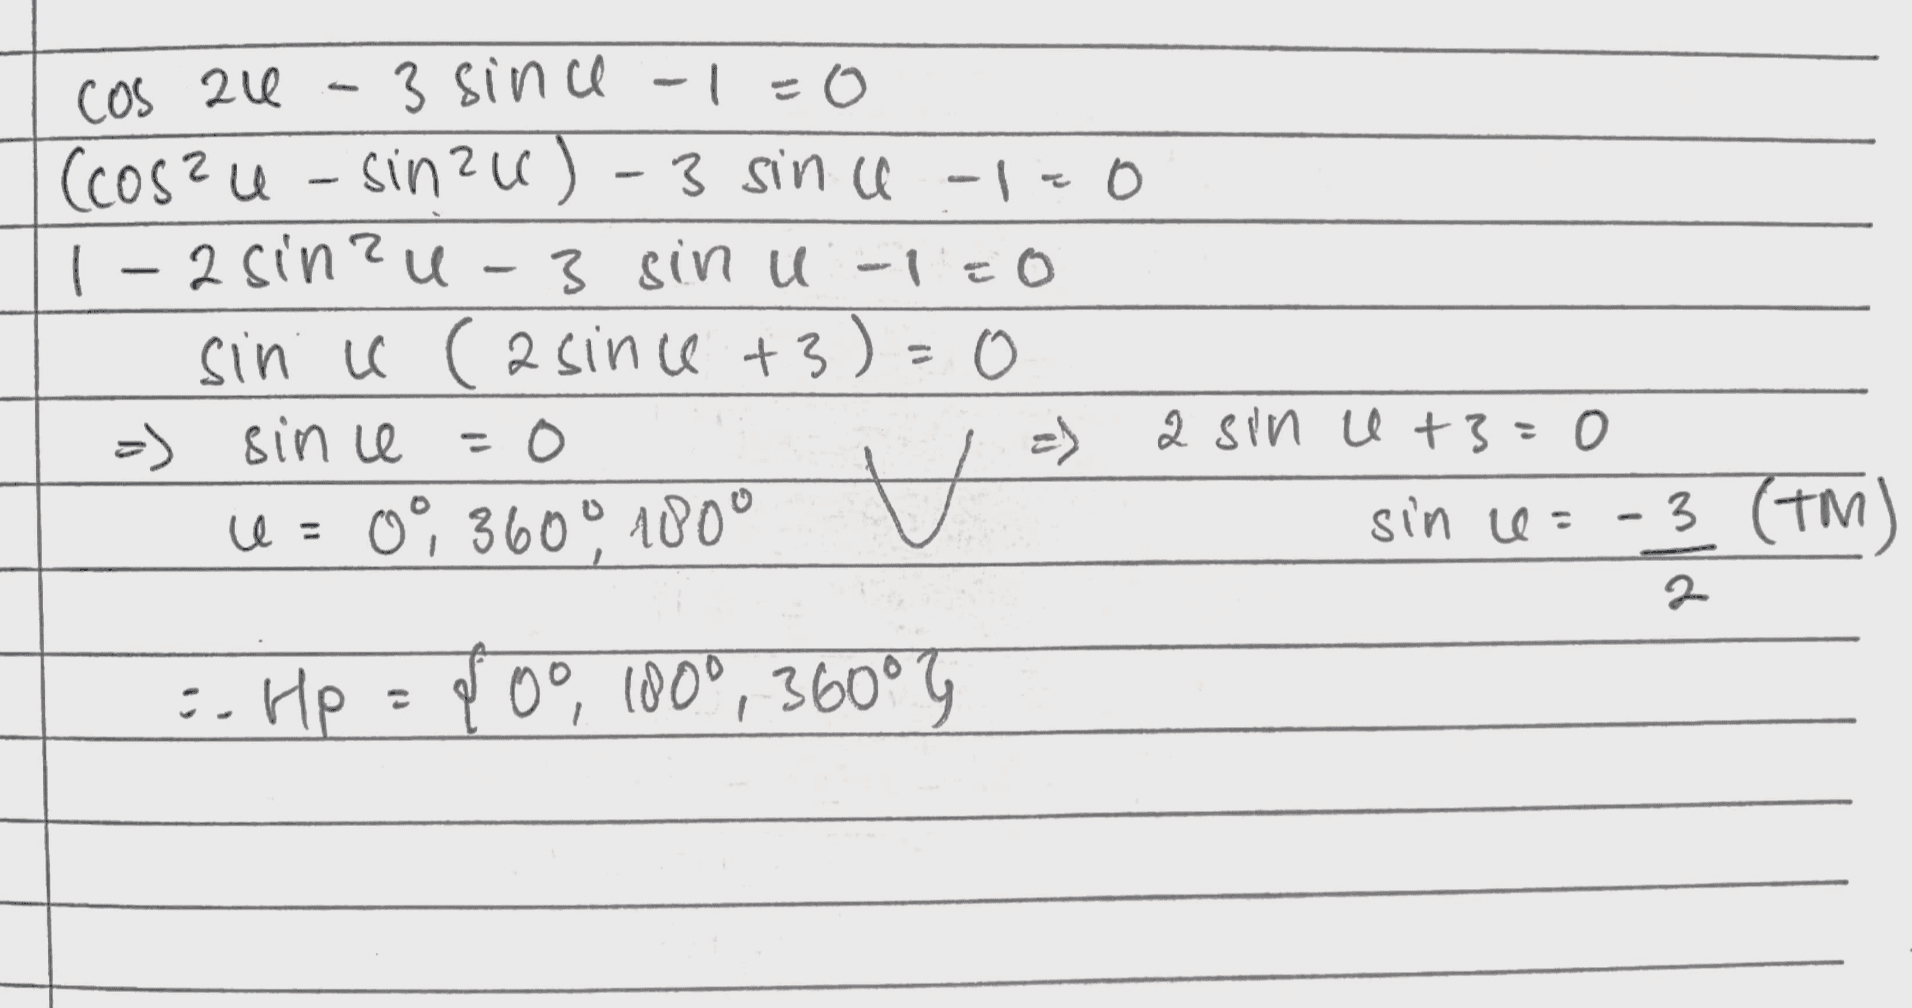 cos 2u - 3 sin u - 1 = 0
(cos² u - sin² u) - 3 sin u - 1 = 0
1 - 2 sin² u - 3 sin u - 1 = 0
sin u (2 sin u + 3) = 0
=> sin u = 0 V => 2 sin u + 3 = 0
u = 0°, 360°, 180° sin u = -3/2 (TM)
∴ Hp = {0°, 180°, 360°}